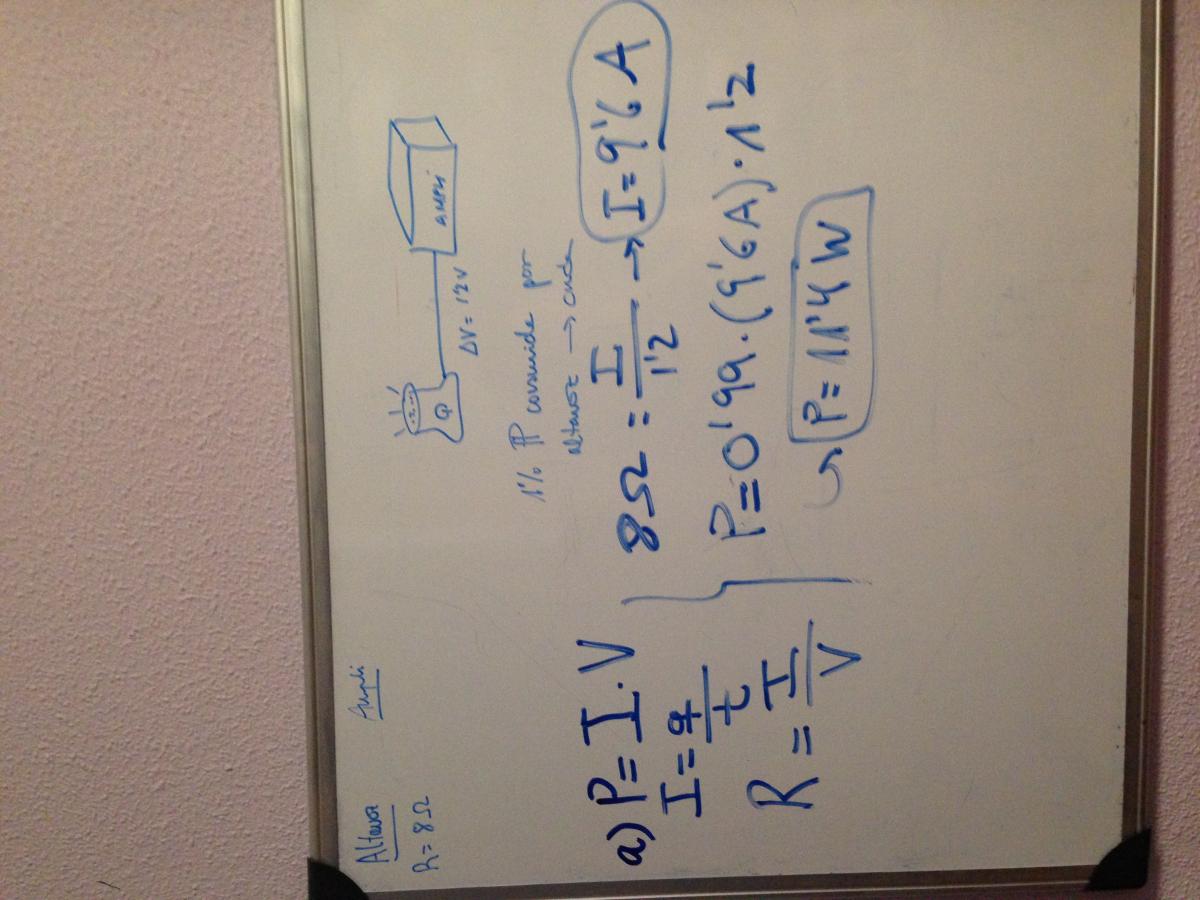 Altavoz
Ampli
R = 8Ω
AMPLI
ΔV = 12V
1% P consumida por
altavoz → onda
a) P = I · V
I = q/t
R = I/V
8Ω = I/1'2 → I = 9'6 A
P = 0'99 · (9'6 A) · 1'2
↳ P = 11'4 W